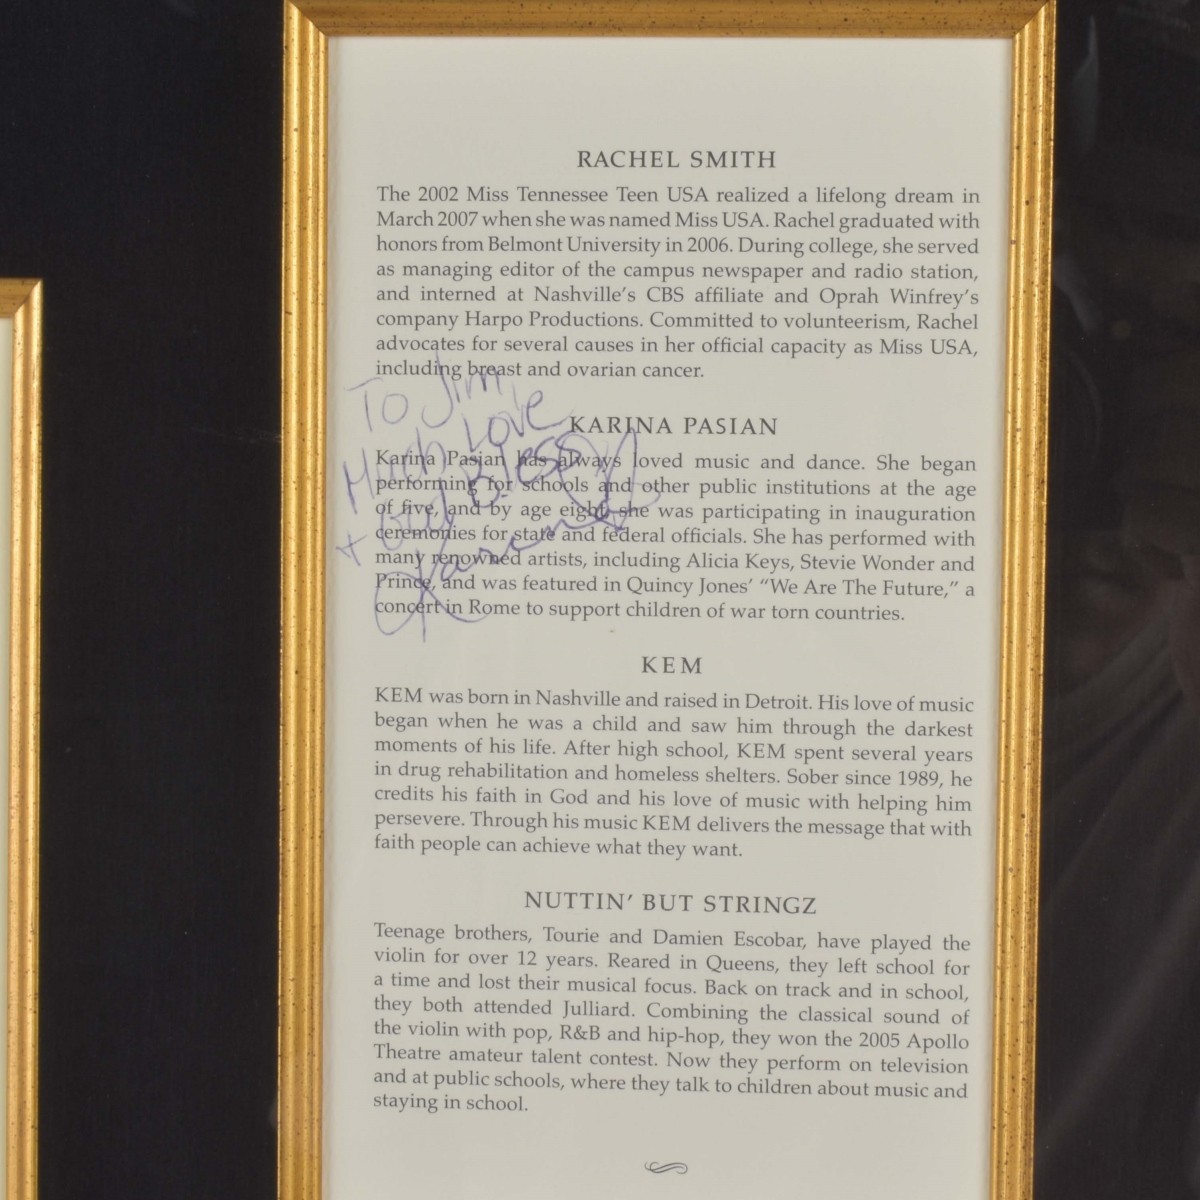 RACHEL SMITH
The 2002 Miss Tennessee Teen USA realized a lifelong dream in
March 2007 when she was named Miss USA. Rachel graduated with
honors from Belmont University in 2006. During college, she served
as managing editor of the campus newspaper and radio station,
and interned at Nashville's CBS affiliate and Oprah Winfrey's
company Harpo Productions. Committed to volunteerism, Rachel
advocates for several causes in her official capacity as Miss USA,
including breast and ovarian cancer.
To Jim,
Much Love
+ God Bless
Karina
KARINA PASIAN
Karina Pasian has always loved music and dance. She began
performing for schools and other public institutions at the age
of five, and by age eight, she was participating in inauguration
ceremonies for state and federal officials. She has performed with
many renowned artists, including Alicia Keys, Stevie Wonder and
Prince, and was featured in Quincy Jones' “We Are The Future,” a
concert in Rome to support children of war torn countries.
KEM
KEM was born in Nashville and raised in Detroit. His love of music
began when he was a child and saw him through the darkest
moments of his life. After high school, KEM spent several years
in drug rehabilitation and homeless shelters. Sober since 1989, he
credits his faith in God and his love of music with helping him
persevere. Through his music KEM delivers the message that with
faith people can achieve what they want.
NUTTIN' BUT STRINGZ
Teenage brothers, Tourie and Damien Escobar, have played the
violin for over 12 years. Reared in Queens, they left school for
a time and lost their musical focus. Back on track and in school,
they both attended Julliard. Combining the classical sound of
the violin with pop, R&B and hip-hop, they won the 2005 Apollo
Theatre amateur talent contest. Now they perform on television
and at public schools, where they talk to children about music and
staying in school.